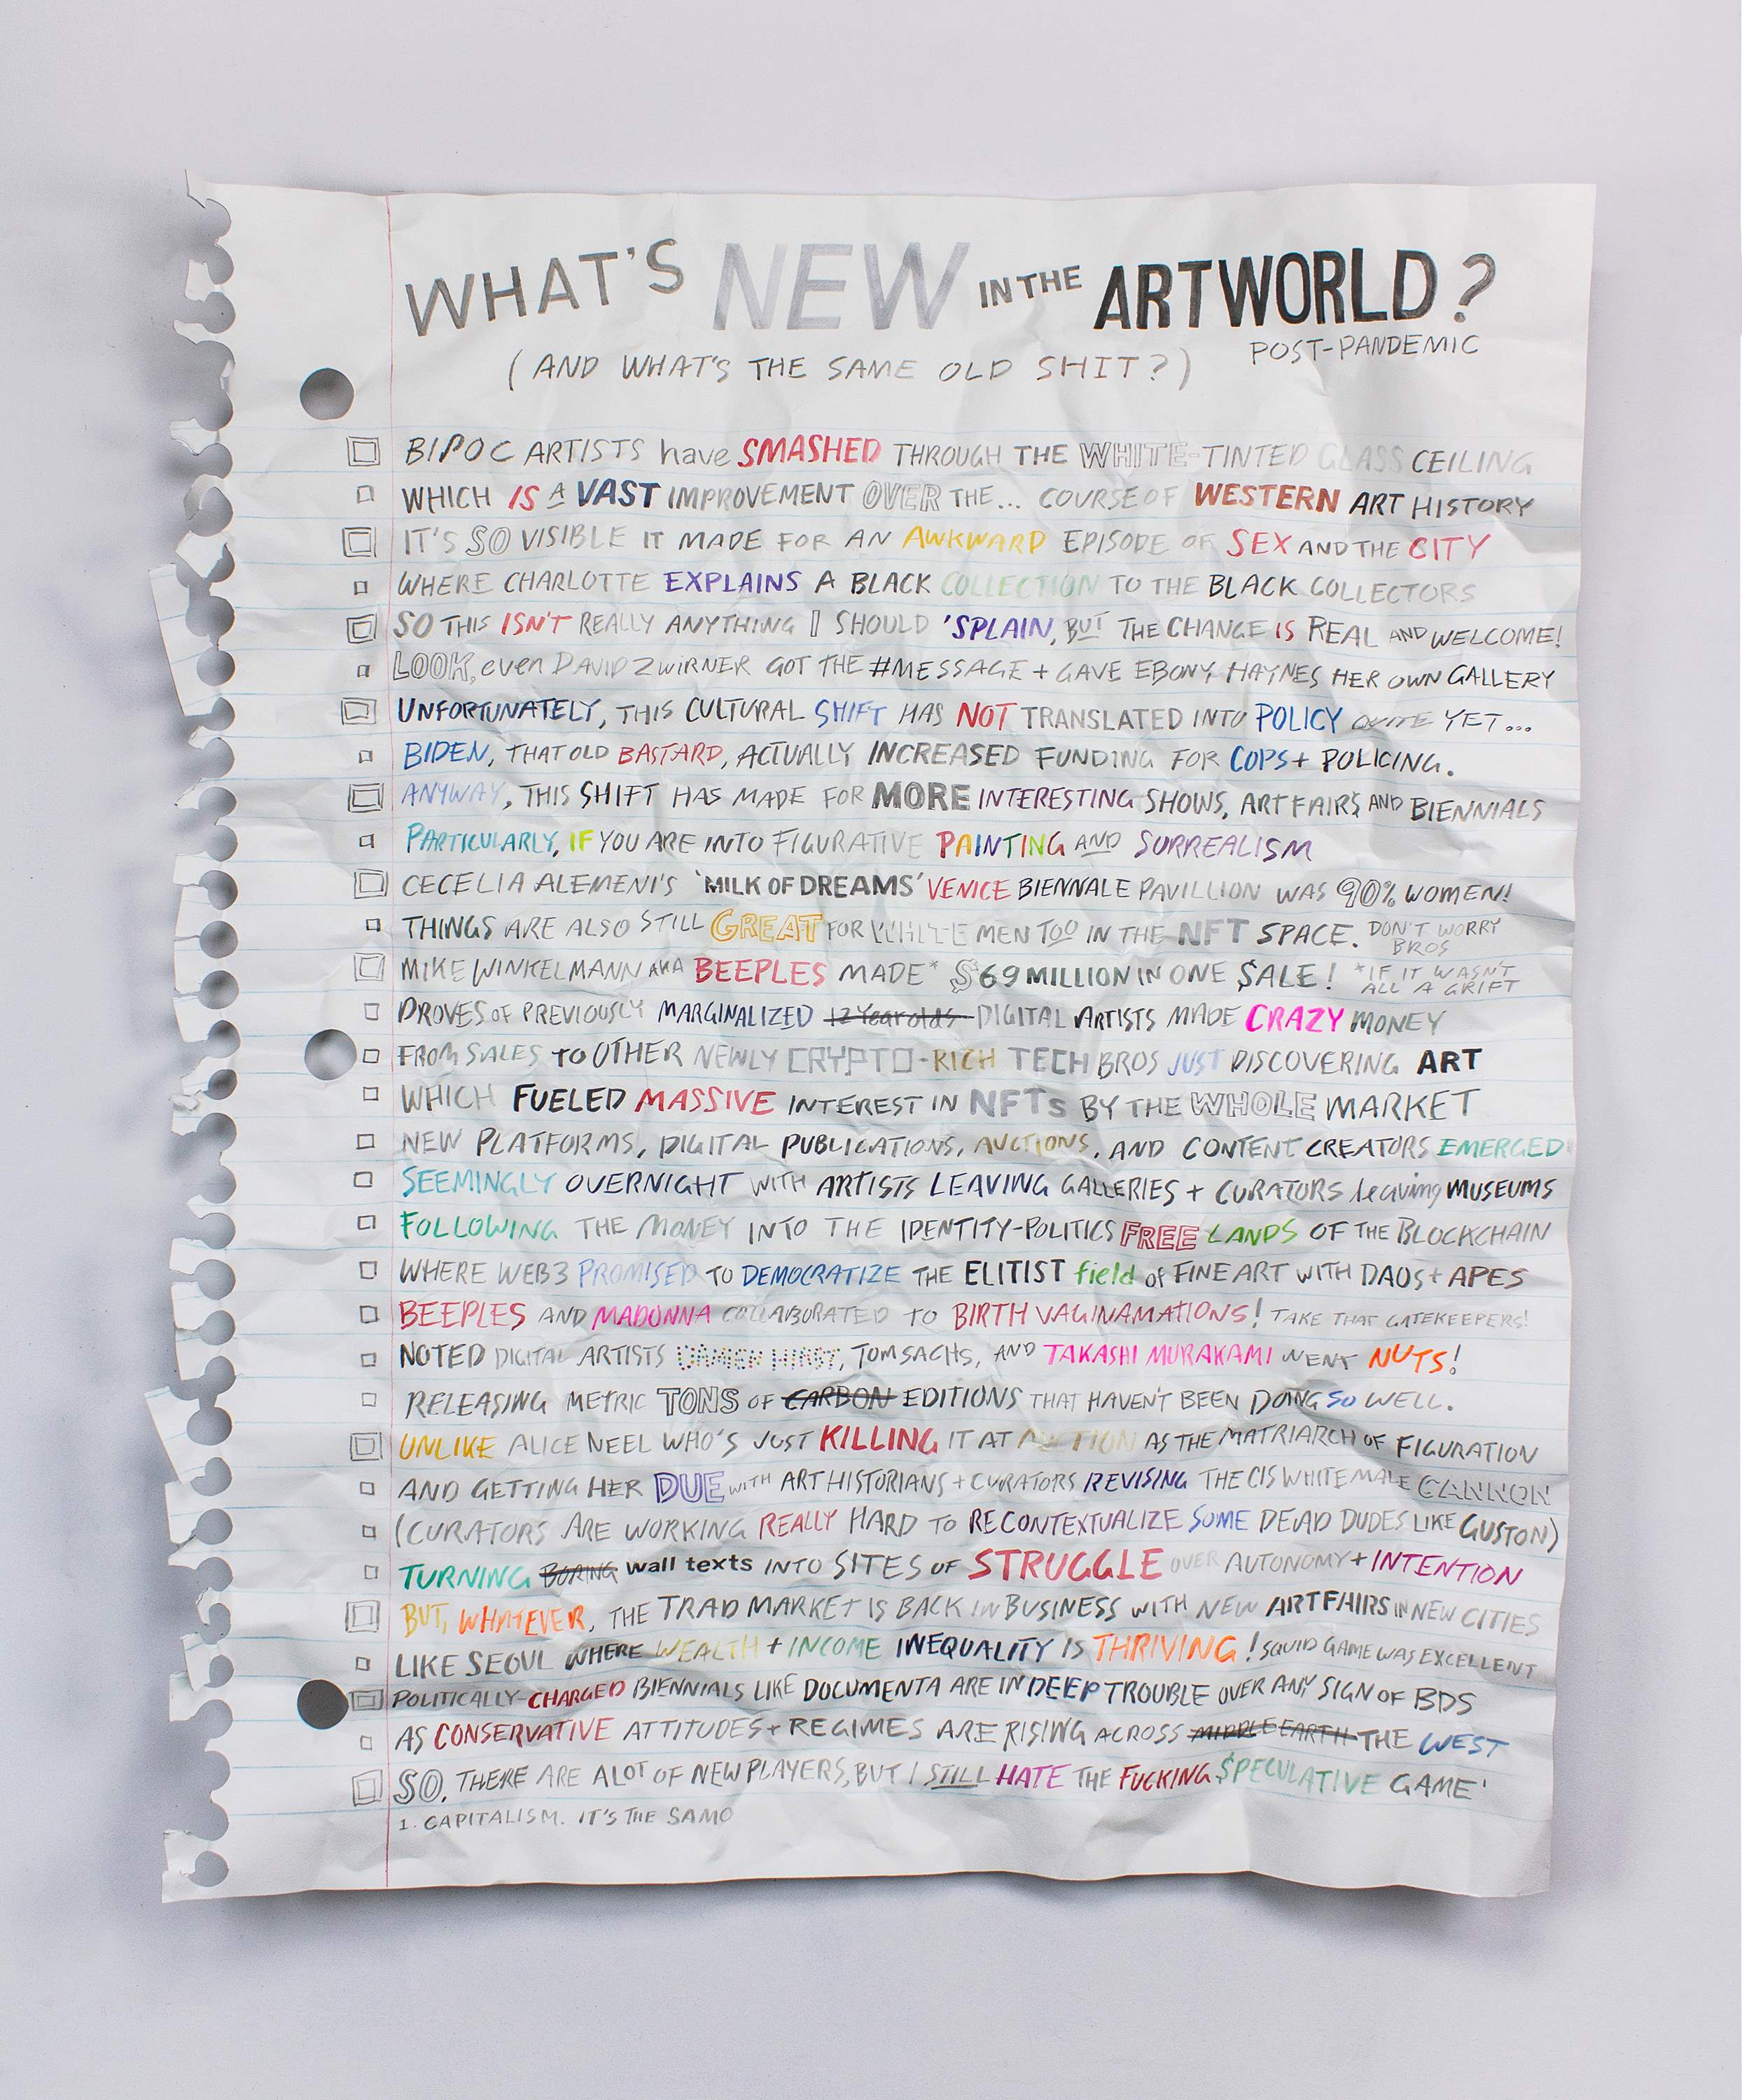 WHAT'S NEW IN THE ARTWORLD?
POST-PANDEMIC
(AND WHAT'S THE SAME OLD SHIT?)
BIPOC ARTISTS have SMASHED THROUGH THE WHITE-TINTED GLASS CEILING
WHICH IS A VAST IMPROVEMENT OVER THE... COURSE OF WESTERN ART HISTORY
IT'S SO VISIBLE IT MADE FOR AN AWKWARD EPISODE OF SEX AND THE CITY
WHERE CHARLOTTE EXPLAINS A BLACK COLLECTION TO THE BLACK COLLECTORS
SO THIS ISN'T REALLY ANYTHING I SHOULD 'SPLAIN, BUT THE CHANGE IS REAL AND WELCOME!
LOOK, even DAVID ZWIRNER GOT THE #MESSAGE + GAVE EBONY HAYNES HER OWN GALLERY
UNFORTUNATELY, THIS CULTURAL SHIFT HAS NOT TRANSLATED INTO POLICY QUITE YET...
BIDEN, THAT OLD BASTARD, ACTUALLY INCREASED FUNDING FOR COPS + POLICING.
ANYWAY, THIS SHIFT HAS MADE FOR MORE INTERESTING SHOWS, ART FAIR$ AND BIENNIALS
PARTICULARLY, IF YOU ARE INTO FIGURATIVE PAINTING AND SURREALISM
CECELIA ALEMENI'S 'MILK OF DREAMS' VENICE BIENNALE PAVILLION WAS 90% WOMEN!
THINGS ARE ALSO STILL GREAT FOR WHITE MEN TOO IN THE NFT SPACE. DON'T WORRY BROS
MIKE WINKELMANN AKA BEEPLES MADE* $69 MILLION IN ONE $ALE! *IF IT WASN'T ALL A GRIFT
DROVES OF PREVIOUSLY MARGINALIZED 12 Year olds DIGITAL ARTISTS MADE CRAZY MONEY
FROM SALES TO OTHER NEWLY CRYPTO-RICH TECH BROS JUST DISCOVERING ART
WHICH FUELED MASSIVE INTEREST IN NFTs BY THE WHOLE MARKET
NEW PLATFORMS, DIGITAL PUBLICATIONS, AUCTIONS, AND CONTENT CREATORS EMERGED
SEEMINGLY OVERNIGHT WITH ARTISTS LEAVING GALLERIES + CURATORS leaving MUSEUMS
FOLLOWING THE MONEY INTO THE IDENTITY-POLITICS FREE LANDS OF THE BLOCKCHAIN
WHERE WEB3 PROMISED TO DEMOCRATIZE THE ELITIST field of FINE ART WITH DAOS + APES
BEEPLES AND MADONNA COLLABORATED TO BIRTH VAGINAMATIONS! TAKE THAT GATEKEEPERS!
NOTED DIGITAL ARTISTS DAMIEN HIRST, TOM SACHS, AND TAKASHI MURAKAMI WENT NUTS!
RELEASING METRIC TONS OF CARBON EDITIONS THAT HAVEN'T BEEN DOING SO WELL.
UNLIKE ALICE NEEL WHO'S JUST KILLING IT AT AUCTION AS THE MATRIARCH OF FIGURATION
AND GETTING HER DUE WITH ART HISTORIANS + CURATORS REVISING THE CIS WHITE MALE CANNON
(CURATORS ARE WORKING REALLY HARD TO RECONTEXTUALIZE SOME DEAD DUDES LIKE GUSTON)
TURNING BORING wall texts INTO SITES OF STRUGGLE OVER AUTONOMY + INTENTION
BUT, WHATEVER, THE TRAD MARKET IS BACK IN BUSINESS WITH NEW ART FAIRS IN NEW CITIES
LIKE SEOUL WHERE WEALTH + INCOME INEQUALITY IS THRIVING! SQUID GAME WAS EXCELLENT
POLITICALLY-CHARGED BIENNIALS LIKE DOCUMENTA ARE IN DEEP TROUBLE OVER ANY SIGN OF BDS
AS CONSERVATIVE ATTITUDES + REGIMES ARE RISING ACROSS MIDDLE EARTH THE WEST
SO, THERE ARE A LOT OF NEW PLAYERS, BUT I STILL HATE THE FUCKING $PECULATIVE GAME¹
1. CAPITALISM. IT'S THE SAMO